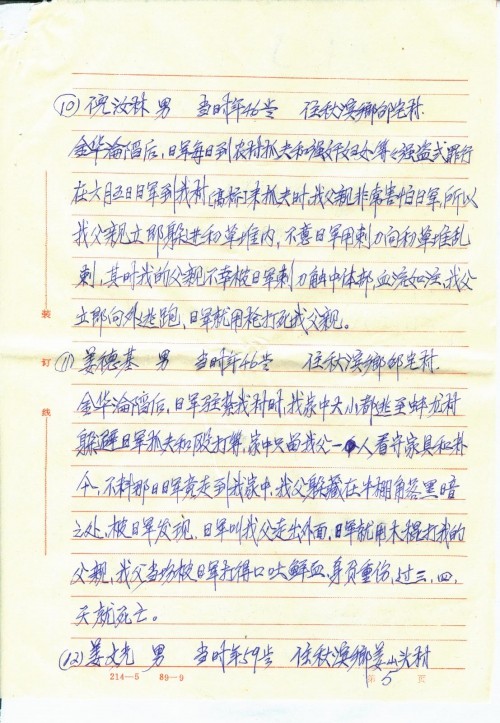 (10) 倪汝林 男 当时年46岁 住秋滨鄉邵宅村.
金华沦陷后,日军每日到农村抓夫和强奸妇女等々强盗式罪行
在六月五日日军到我村(高桥)来抓夫时,我父親非常害怕日军,所以
我父親立即躲进稻草堆内,不意日军用刺刀向稻草堆乱
刺,其时我的父親不幸被日军刺刀触中体部,血流如注,我父
立即向外逃跑,日军就用枪打死我父親。
(11) 姜德基 男 当时年46岁 住秋滨鄉邵宅村.
金华沦陷后,日军驻紮我村时,我家中大小都逃至蚌龙村
躲避日军抓夫和殴打等,家中只留我父一人看守家具和什
个,不料那日日军竟走到我家中,我父躲藏在牛棚角落黑暗
之处,被日军发现,日军叫我父走出外面,日军就用木棍打我的
父親,我父当场被日军打得口吐鲜血,身负重伤,过三,四,
天就死亡。
(12) 姜文光 男 当时年59岁 住秋滨鄉姜山头村
装
订
线
214—5 89—9
第5页